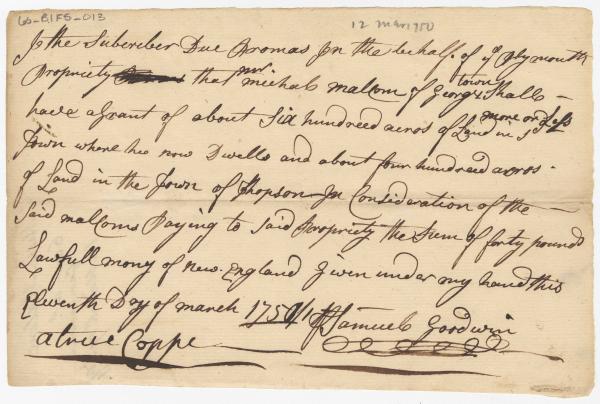 66-BIFS-013
12 Mar 1750
I the Subscriber Due Promas In the behalf of ye Plymouth
Propriety that mr michael malcom of Georges town Shall
have a Grant of about Six hundreed acros of Land more or Less in sd
Town where hee now Dwells and about four hundreed acros
of Land in the Town of Thopson In Consideration of the
Said malcoms Paying to Said Propriety the Sum of forty pounds
Lawfull mony of new England Given under my hand this
Eleventh Day of march 1750/1 Samuel Goodwin
a true Coppe